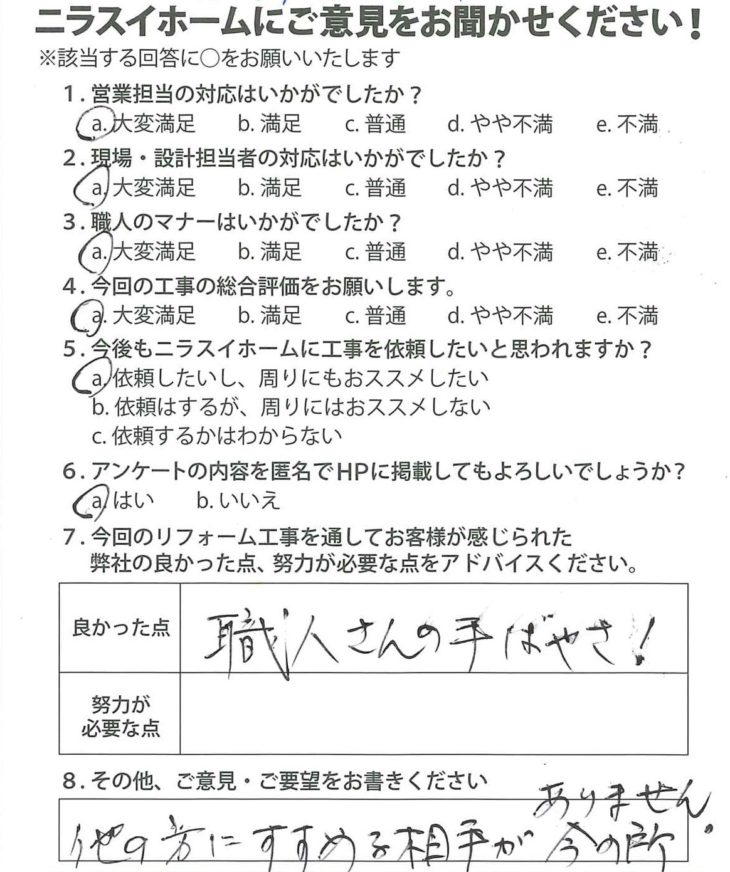 ニラスイホームにご意見をお聞かせください!
※該当する回答に○をお願いいたします
1. 営業担当の対応はいかがでしたか?
a. 大変満足 b. 満足 c. 普通 d. やや不満 e. 不満
2. 現場・設計担当者の対応はいかがでしたか?
a. 大変満足 b. 満足 c. 普通 d. やや不満 e. 不満
3. 職人のマナーはいかがでしたか?
a. 大変満足 b. 満足 c. 普通 d. やや不満 e. 不満
4. 今回の工事の総合評価をお願いします。
a. 大変満足 b. 満足 c. 普通 d. やや不満 e. 不満
5. 今後もニラスイホームに工事を依頼したいと思われますか?
a. 依頼したいし、周りにもおススメしたい
b. 依頼はするが、周りにはおススメしない
c. 依頼するかはわからない
6. アンケートの内容を匿名でHPに掲載してもよろしいでしょうか?
a. はい b. いいえ
7. 今回のリフォーム工事を通してお客様が感じられた
弊社の良かった点、努力が必要な点をアドバイスください。
良かった点 職人さんの手ばやさ!
努力が
必要な点
8. その他、ご意見・ご要望をお書きください
他の方にすすめる相手が今の所
ありません。